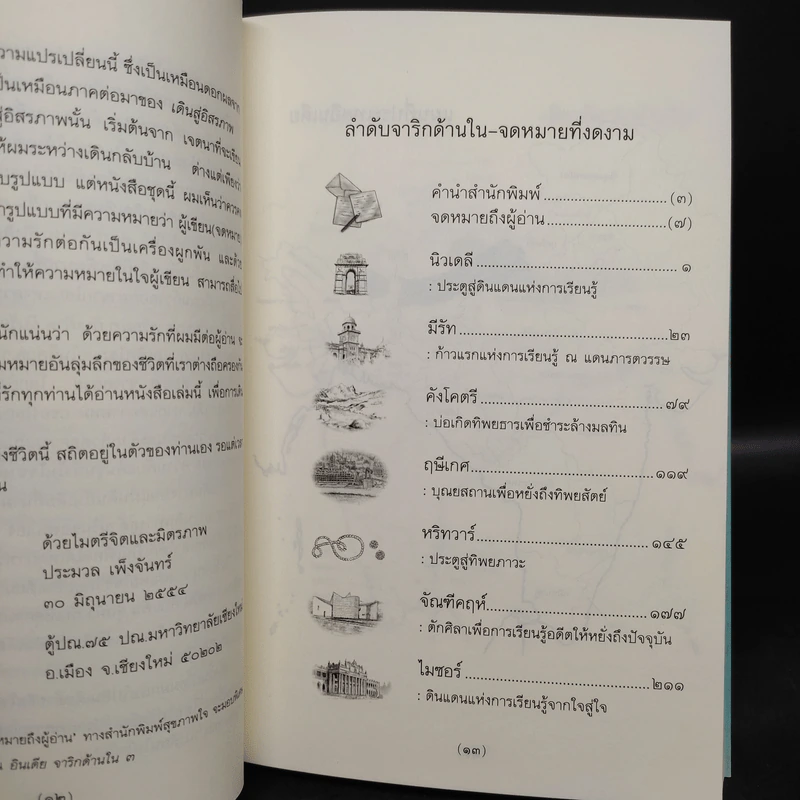 วามแปรเปลี่ยนนี้ ซึ่งเป็นเหมือนดอกผลจาก
ป็นเหมือนภาคต่อมาของ เดินสู่อิสรภาพ
สู่อิสรภาพนั้น เริ่มต้นจาก เจตนาที่จะเขียน
ห้ผมระหว่างเดินกลับบ้าน ต่างแต่เพียงว่า
บรูปแบบ แต่หนังสือชุดนี้ ผมเห็นว่าควร
ารูปแบบที่มีความหมายว่า ผู้เขียน(จดหมาย)
ความรักต่อกันเป็นเครื่องผูกพัน และด้วย
ทำให้ความหมายในใจผู้เขียน สามารถสื่อ
นักแน่นว่า ด้วยความรักที่ผมมีต่อผู้อ่าน จะ
มหมายอันลุ่มลึกของชีวิตที่เราต่างถือครอง
ที่รักทุกท่านได้อ่านหนังสือเล่มนี้ เพื่อการ
งชีวิตนี้ สถิตอยู่ในตัวของท่านเอง รอแต่เวลา
น
ด้วยไมตรีจิตและมิตรภาพ
ประมวล เพ็งจันทร์
๓๐ มิถุนายน ๒๕๕๔
ตู้ปณ.๗๕ ปณ.มหาวิทยาลัยเชียงใหม่
อ.เมือง จ.เชียงใหม่ ๕๐๒๐๒
หมายถึงผู้อ่าน' ทางสำนักพิมพ์สุขภาพใจ จะมอบ
น อินเดีย จาริกด้านใน ๓
(๑๒)
ลำดับจาริกด้านใน-จดหมายที่งดงาม
คำนำสำนักพิมพ์ (๓)
จดหมายถึงผู้อ่าน (๗)
นิวเดลี ๑
: ประตูสู่ดินแดนแห่งการเรียนรู้
มีรัท ๒๓
: ก้าวแรกแห่งการเรียนรู้ ณ แดนภารตวรรษ
คังโคตรี ๗๙
: บ่อเกิดทิพยธารเพื่อชำระล้างมลทิน
ฤษีเกศ ๑๑๙
: บุณยสถานเพื่อหยั่งถึงทิพยสัตย์
หริทวาร์ ๑๔๕
: ประตูสู่ทิพยภาวะ
จัณฑีคฤห์ ๑๗๗
: ตักศิลาเพื่อการเรียนรู้อดีตให้หยั่งถึงปัจจุบัน
ไมซอร์ ๒๑๑
: ดินแดนแห่งการเรียนรู้จากใจสู่ใจ
(๑๓)